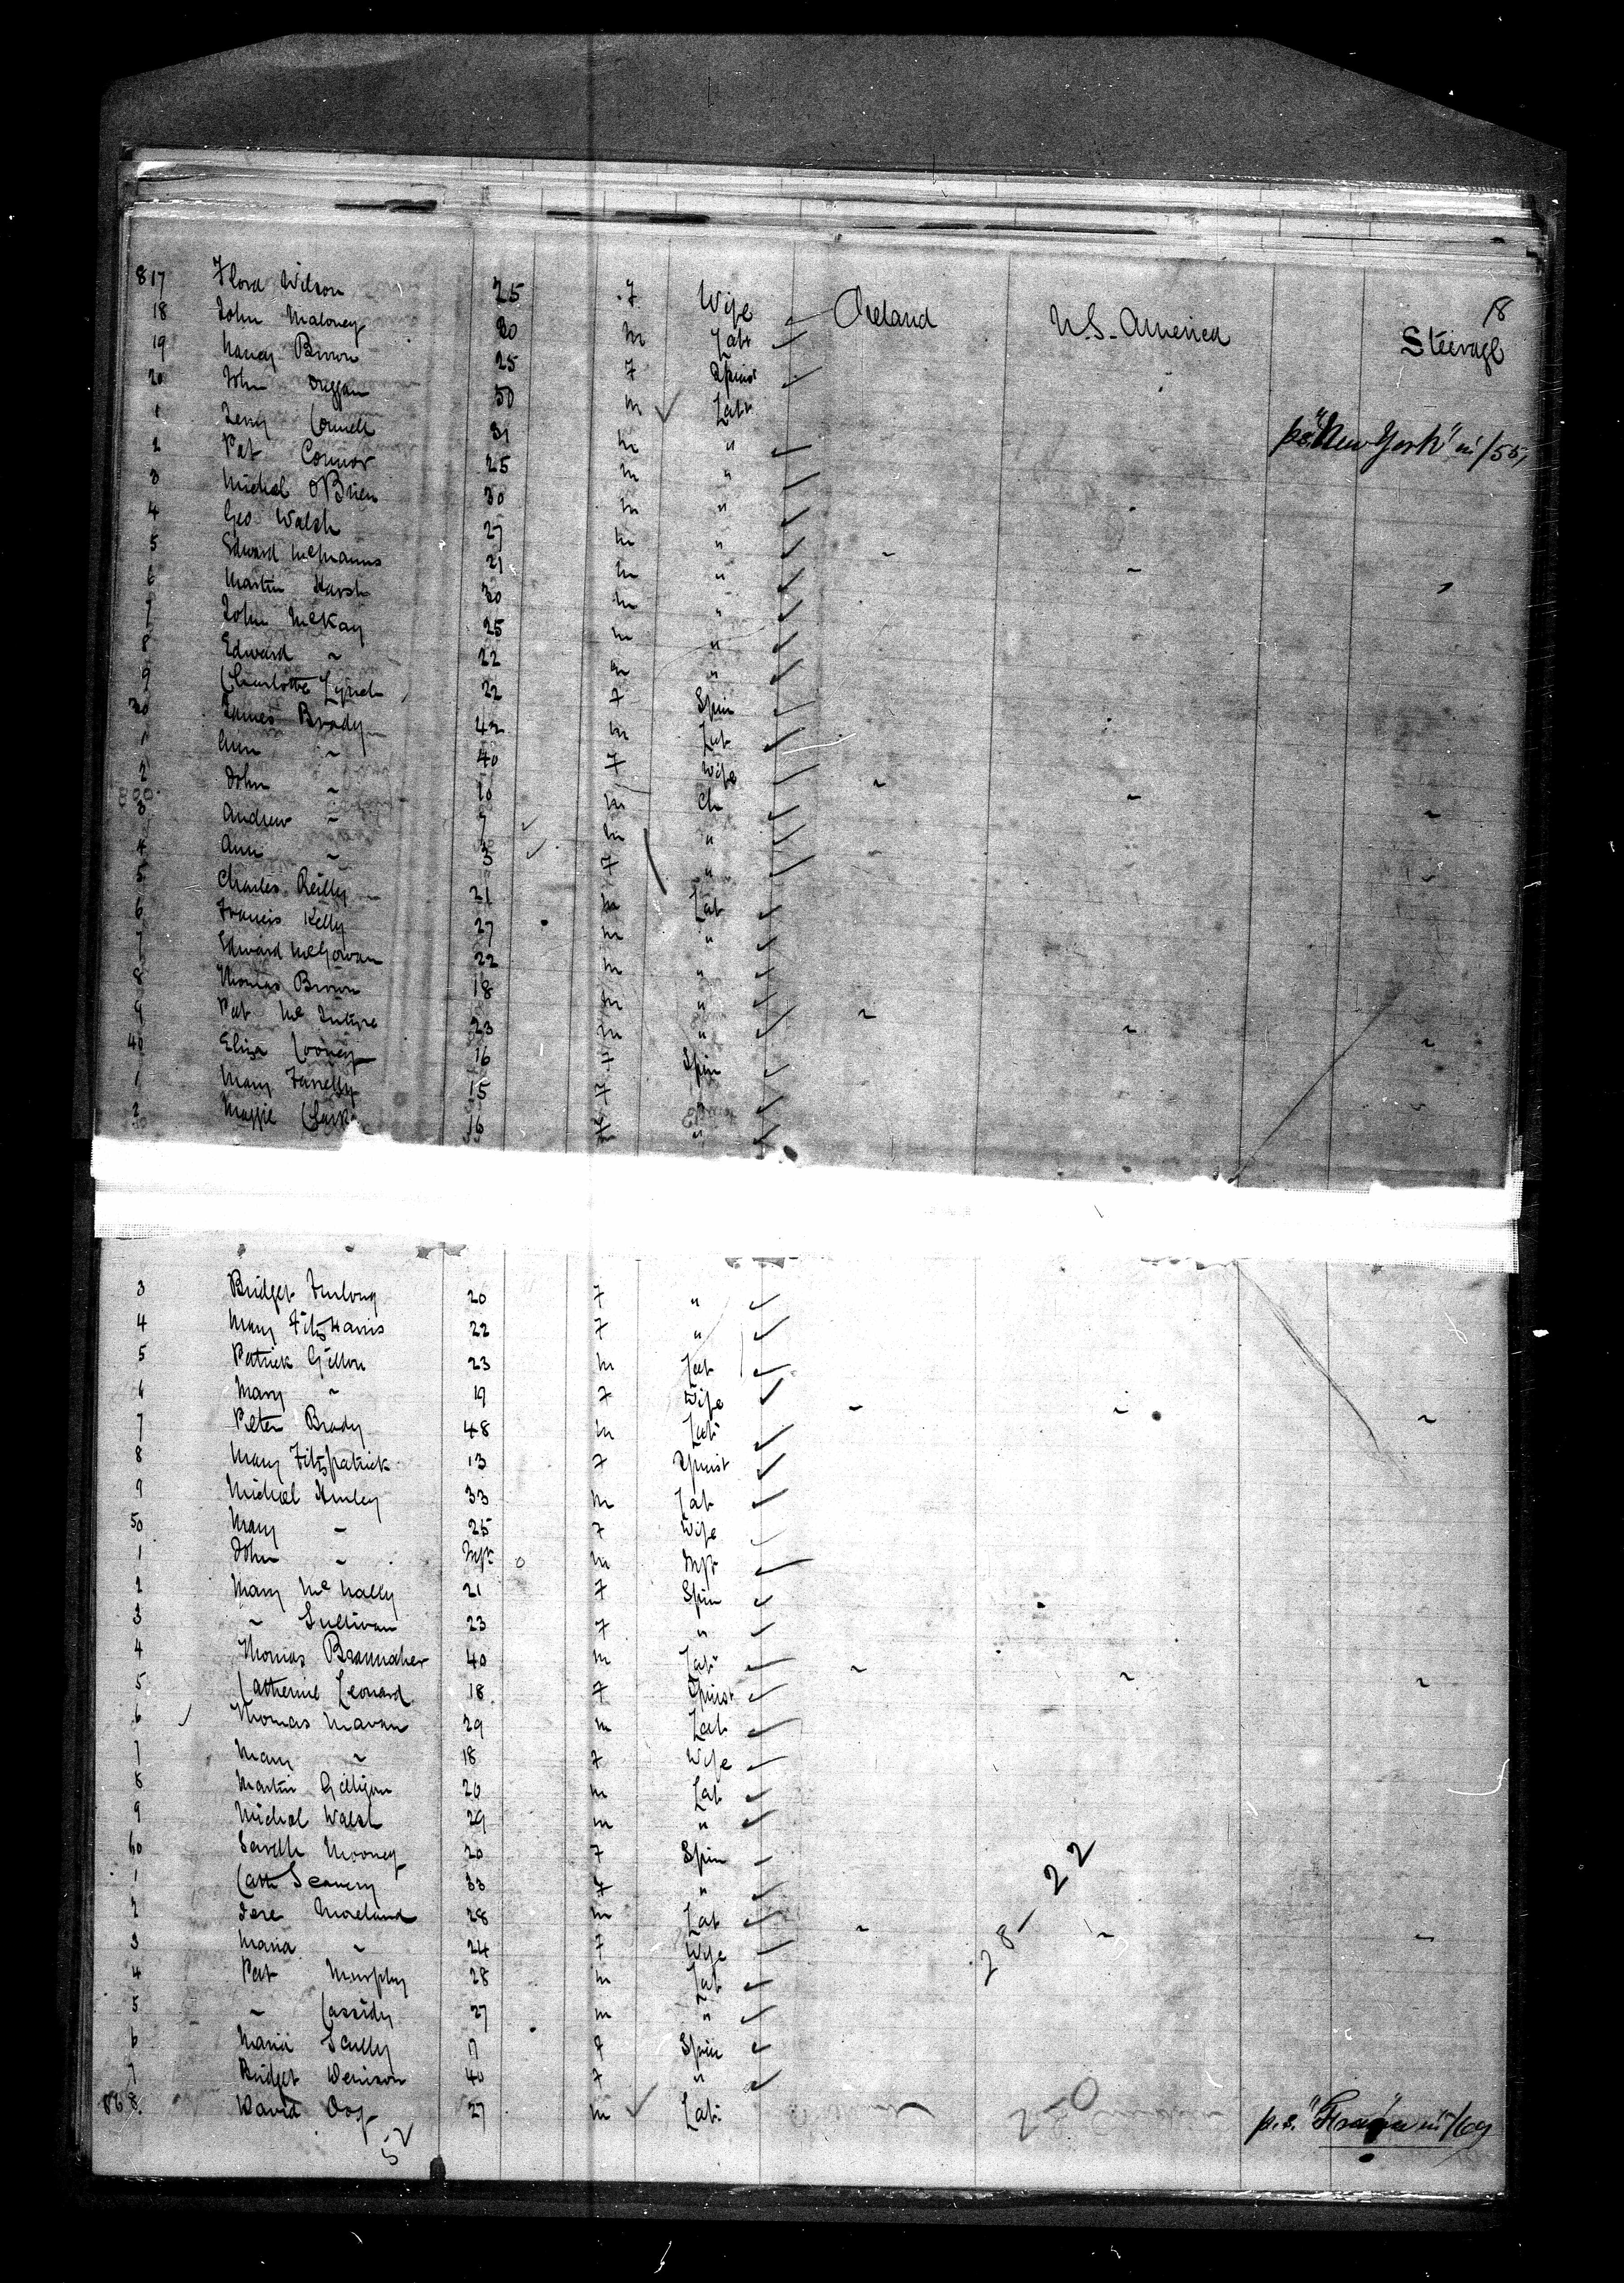 18
817 Flora Wilson 25 F Wife Ireland U.S. America Steerage
18 John Maloney 30 M Labr
19 Nancy Brown 25 F Spinst
20 John Duggan 50 M Labr
1 31 M " ps "New York" in /55
2 Pat Connor 25 M "
3 Michal O'Brien 30 M "
4 Geo Walsh 27 M "
5 Edward McManus 21 M "
6 Martin Harsh 30 M "
7 John McKay 25 M "
8 Edward ~ 22 M "
9 Charlotte Lynch 22 F Spin
30 James Brady 42 M Lab
1 Ann ~ 40 F Wife
2 John ~ 10 M Ch
3 Andrew ~ 7 M "
4 Ann ~ 3 F "
5 Charles Reilly 21 M Lab
6 Francis Kelly 27 M "
7 Edward McGowan 22 M "
8 Thomas Brown 18 M "
9 Pat McIntyre 23 M "
40 Eliza Cooney 16 F Spin
1 Mary Farrelly 15 F "
2 Maggie Clark 16 F "
3 Bridget Furlong 20 F "
4 Mary FitzHarris 22 F "
5 Patrick Gillon 23 M Lab
6 Mary ~ 19 F Wife
7 Peter Brady 48 M Lab
8 Mary Fitzpatrick 13 F Spinst
9 Michal Hurley 33 M Lab
50 Mary ~ 25 F Wife
1 John ~ Inft M Inft
2 Mary McNally 21 F Spin
3 ~ Sullivan 23 F "
4 Thomas 40 M Lab
5 Catherine Leonard 18 F Spinst
6 Thomas Mavan 29 M Lab
7 Mary ~ 18 F Wife
8 Martin Gilligan 20 M Lab
9 Michal Walsh 29 M "
60 Sarah Mooney 20 F Spin
1 Cath 33 F "
2 Moreland 28 M Lab
3 Maria ~ 24 F Wife
4 Pat Murphy 28 M Lab
5 ~ Cassidy 27 M "
6 Maria Scully 17 F Spin
7 Bridget Denison 40 F "
868 David 27 M Lab p.s. in /69
28-22
52